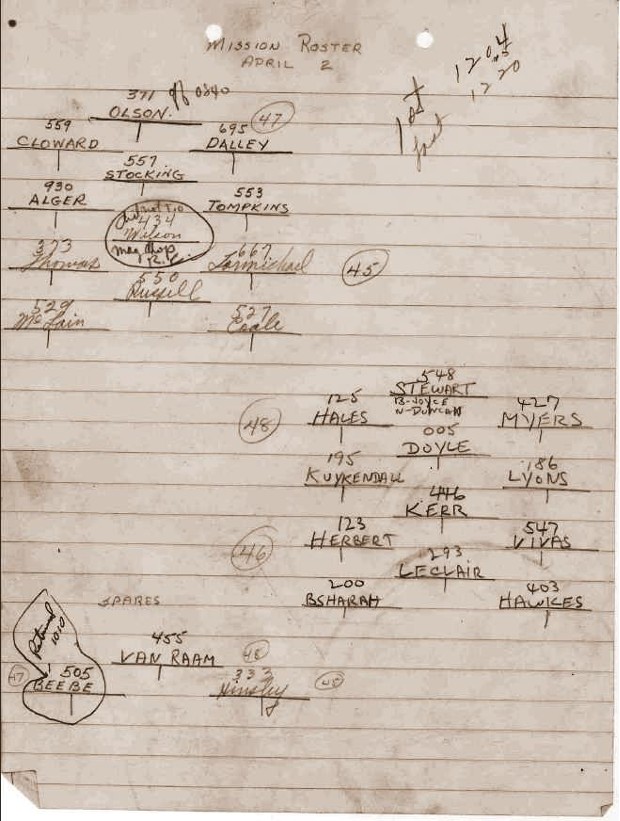 MISSION ROSTER
APRIL 2
1st 1204.5
last 1220
371 off 0840
OLSON.
559 695 47
CLOWARD DALLEY
557
STOCKING
930 553
ALGER TOMPKINS
434
Wilson
373 667
Thomas Carmichael 45
550
Russell
529 527
McLain Cagle
548
125 STEWART 427
48 HALES B-JOYCE MYERS
N-DUNCAN
005
DOYLE
195 186
KUYKENDALL LYONS
446
KERR
123 547
HERBERT VIVAS
46 293
LECLAIR
200 403
BSHARAH HAWKES
SPARES
Returned
1010
455 48
VAN RAAM
47 505 333
BEEBE Hinsley